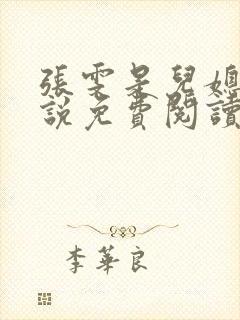 張雯呆兒媳
說免費閱讀
李華良